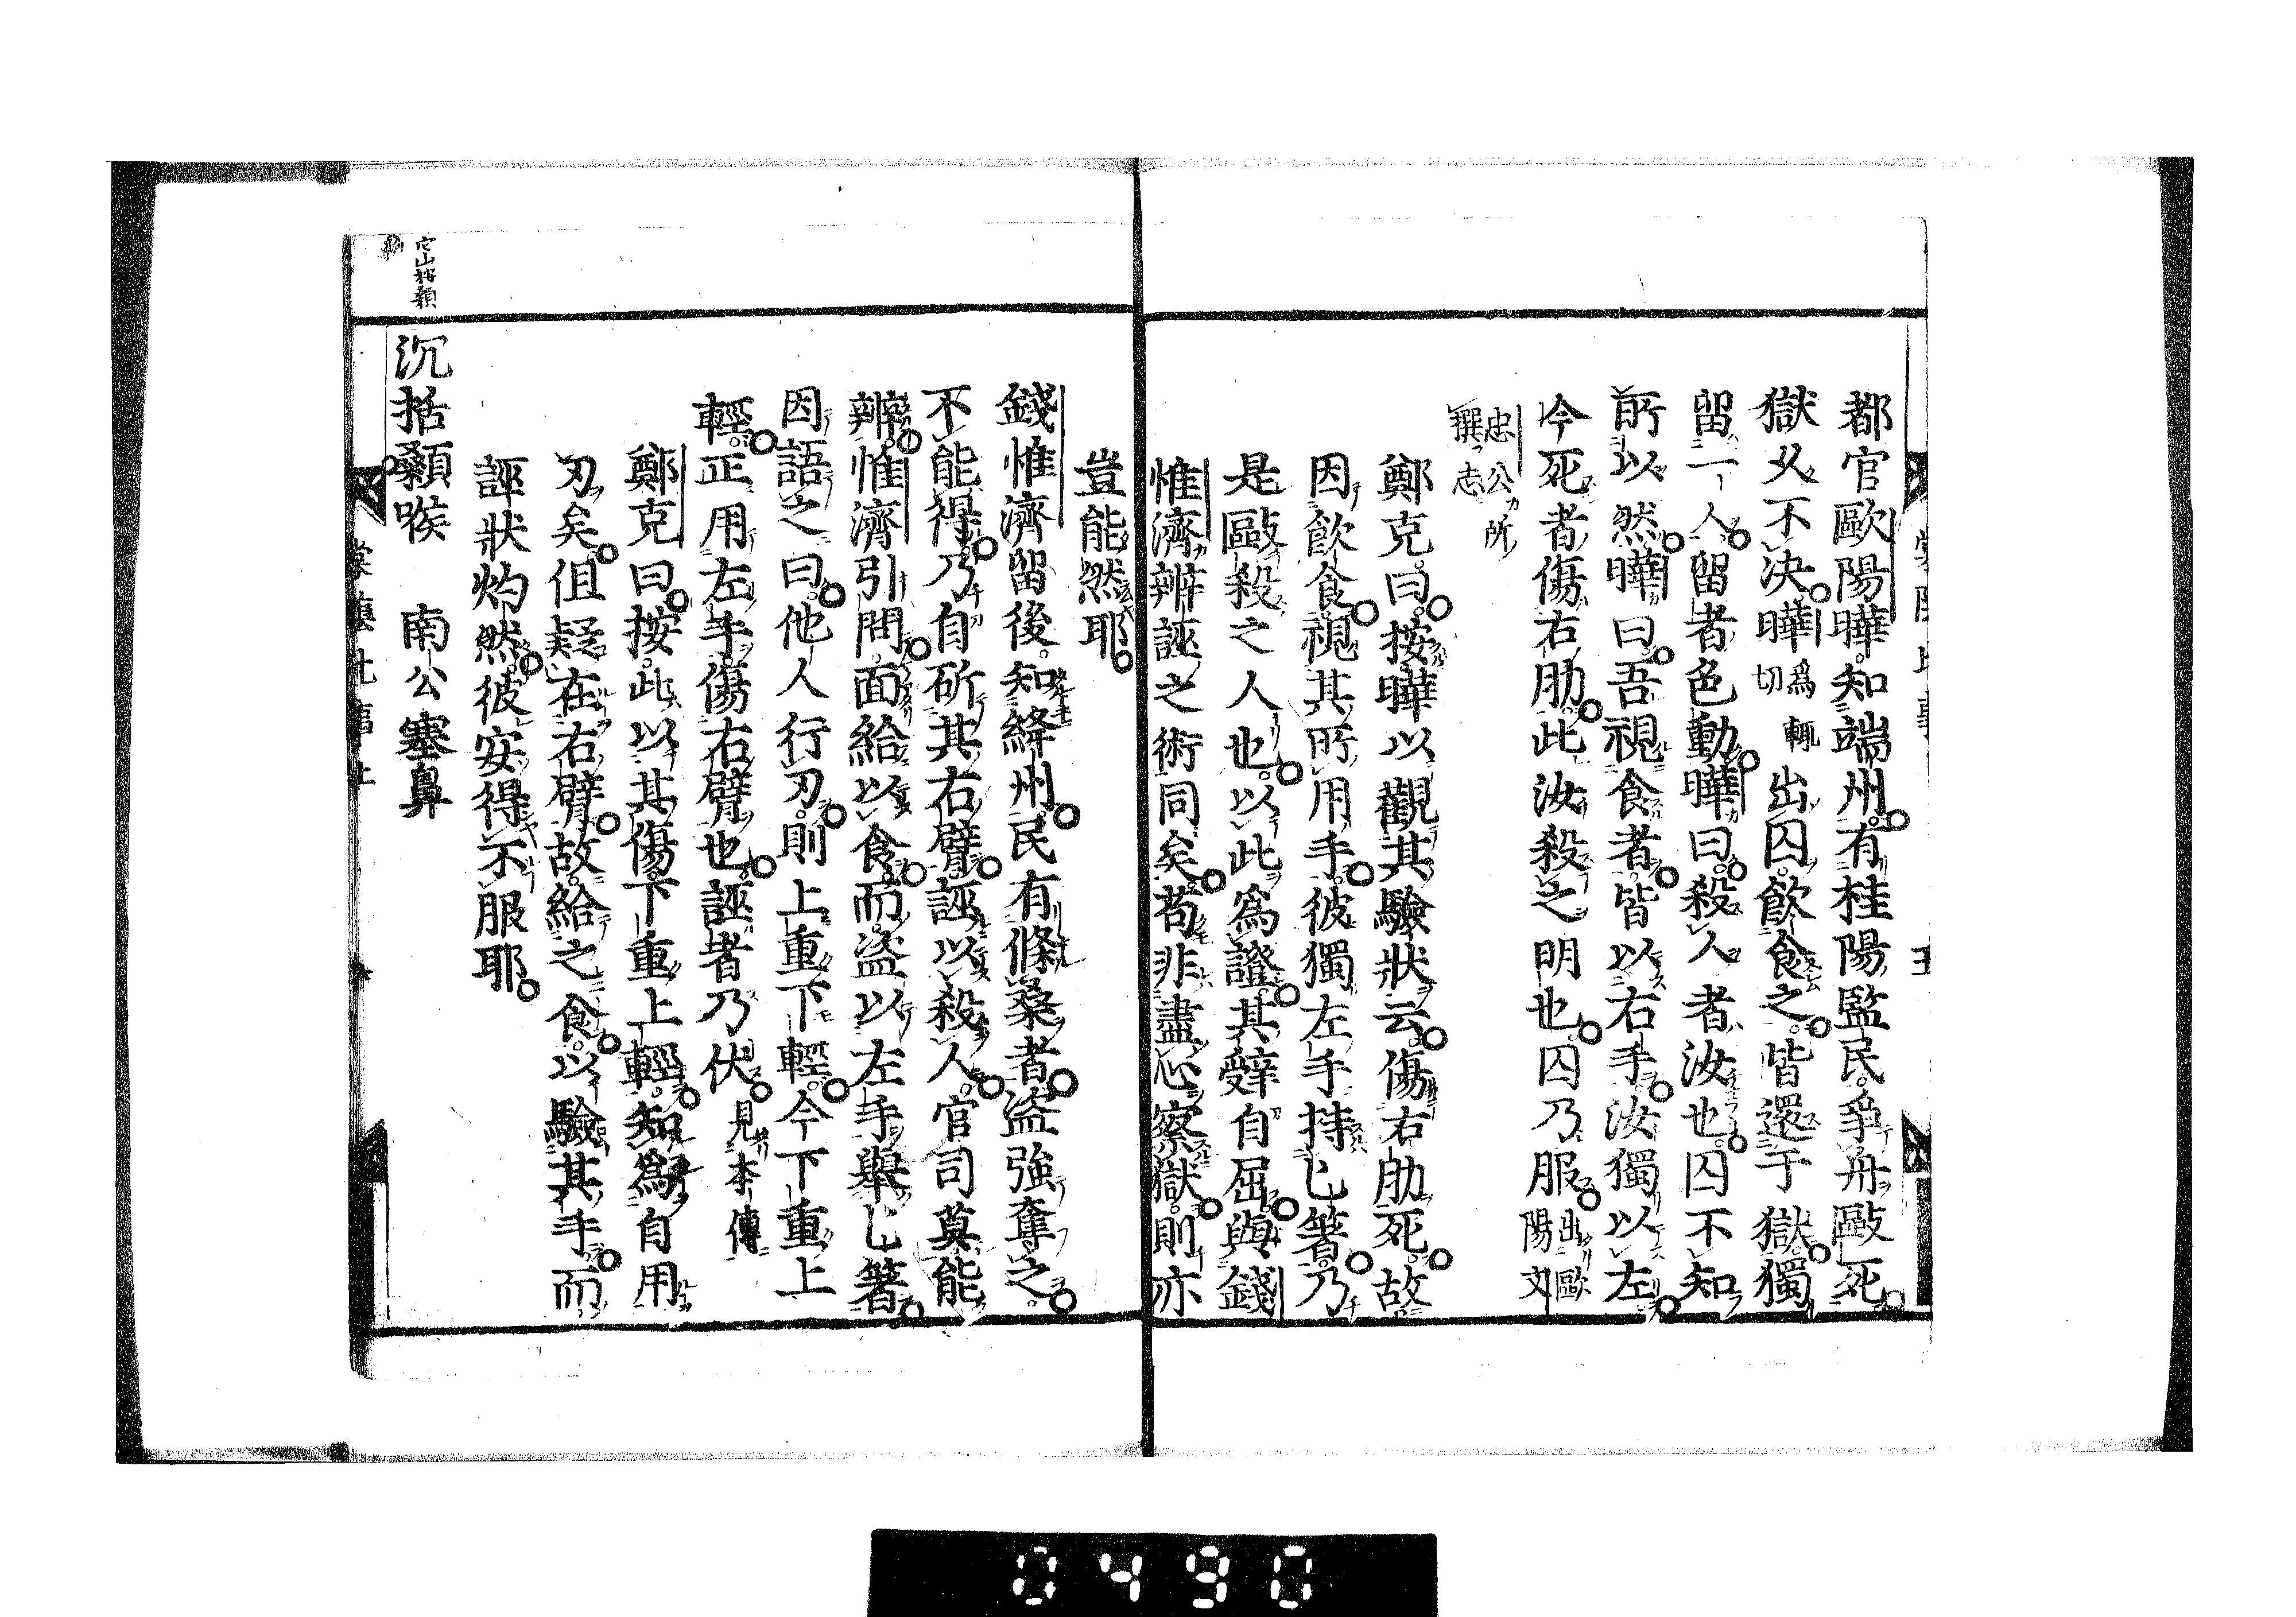 都官歐陽曄知端州有桂陽監民爭舟毆死
獄久不決曄為輒切出囚飲食之皆還于獄獨
留一人留者色動曄曰殺人者汝也囚不知
所以然曄曰吾視食者皆以右手汝獨以左
今死者傷右肋此汝殺之明也囚乃服出歐陽文
忠公所撰志
鄭克曰按曄以觀其驗狀云傷右肋死故
因飲食視其所用手彼獨左手持匕箸乃
是毆殺之人也以此爲證其辭自屈與錢
惟濟辨誣之術同矣苟非盡心察獄則亦
豈能然耶
錢惟濟留後知絳州民有條桑者盜強奪之
不能得乃自斫其右臂誣以殺人官司莫能
辨惟濟引問面給以食而盜以左手舉匕箸
因語之曰他人行刃則上重下輕今下重上
輕正用左手傷右臂也誣者乃伏見本傳
鄭克曰按此以其傷下重上輕知爲自用
刃矣但疑在右臂故給之食以驗其手而
誣狀灼然彼安得不服耶
沉括顙喉　南公塞鼻